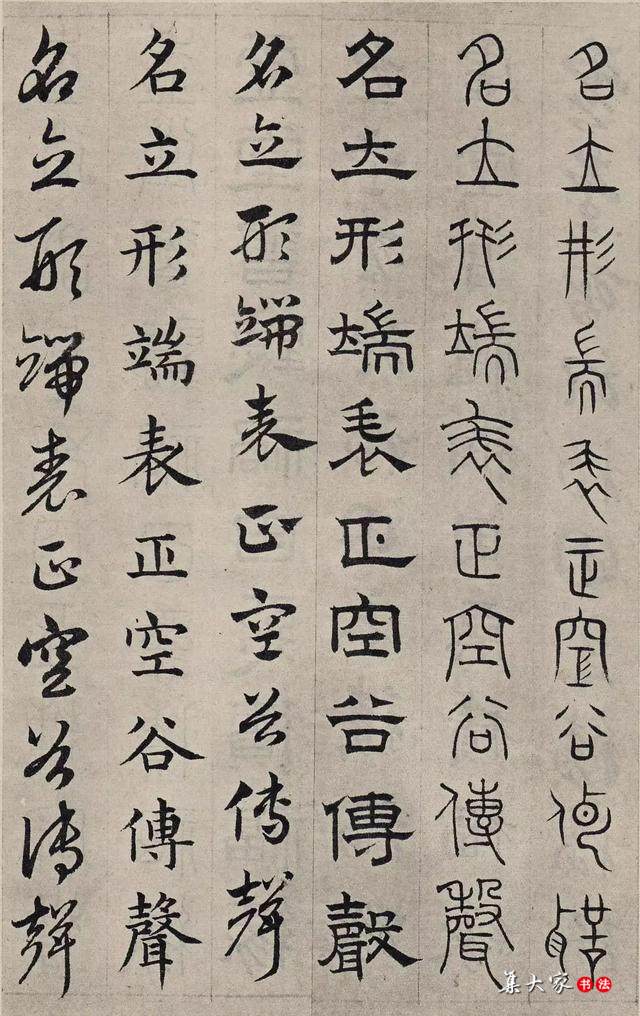 名立形端表正空谷傳聲
名立形端表正空谷傳聲
名立形端表正空谷傳聲
名立形端表正空谷傳聲
名立形端表正空谷傳聲
名立形端表正空谷傳聲
集大家书法